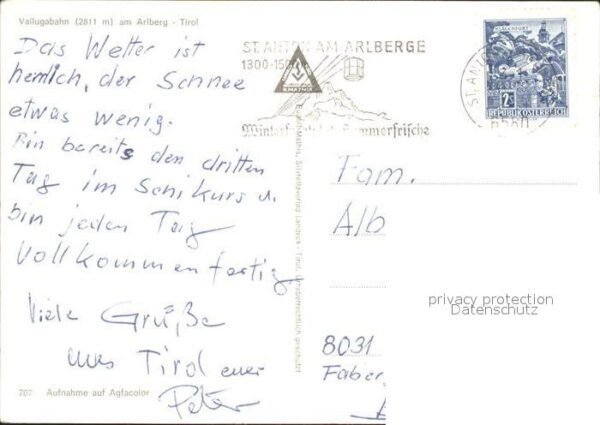 Vallugabahn (2811 m) am Arlberg - Tirol
Das Wetter ist
herrlich, der Schnee
etwas wenig.
Bin bereits den dritten
Tag im Schikurs u.
bin jeden Tag
vollkommen fertig
Viele Grüße
aus Tirol euer
Peter
707 Aufnahme auf Agfacolor
ST. ANTON AM ARLBERGE
1300-15
R. MATHIS
Wintersport Sommerfrische
ST. AN
6580
KLAGENFURT
2S
REPUBLIK ÖSTERREICH
Risch-Lau, Tirol. Urheberrechtlich geschützt
Fam.
Alb
privacy protection
Datenschutz
8031
Faber